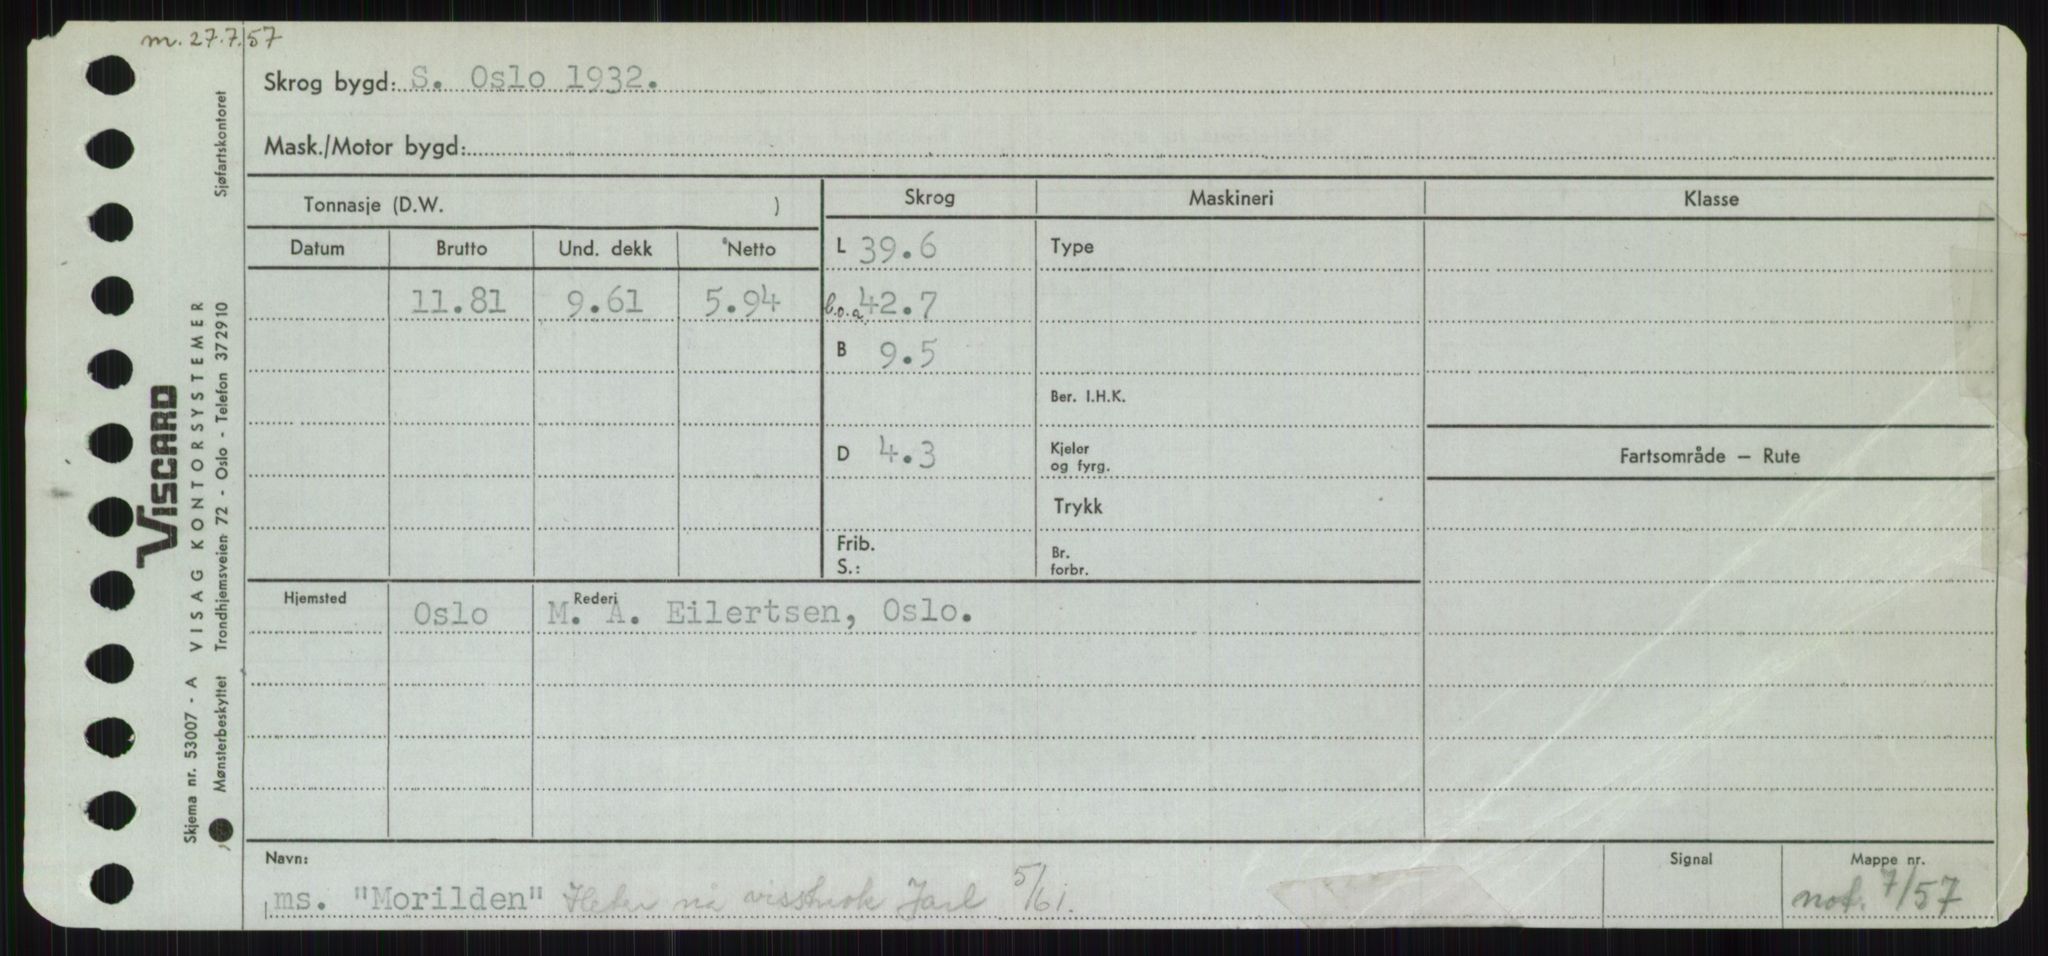 m. 27.7.57
Skrog bygd: S. Oslo 1932.
Mask./Motor bygd:
Tonnasje (D.W. )
Skrog Maskineri Klasse
Datum Brutto Und. dekk Netto
L 39.6 Type
11.81 9.61 5.94 b.o.a. 42.7
B 9.5
Ber. I.H.K.
D 4.3 Kjeler og fyrg.
Fartsområde — Rute
Trykk
Frib. S.: Br. forbr.
Hjemsted Oslo Rederi M. A. Eilertsen, Oslo.
Navn: Signal Mappe nr.
ms. "Morilden" Heter nå visstnok Jarl 5/61. not. 7/57
VISCARD
VISAG KONTORSYSTEMER
Skjema nr. 53007 - A
Mønsterbeskyttet Trondhjemsveien 72 - Oslo - Telefon 372910 Sjøfartskontoret